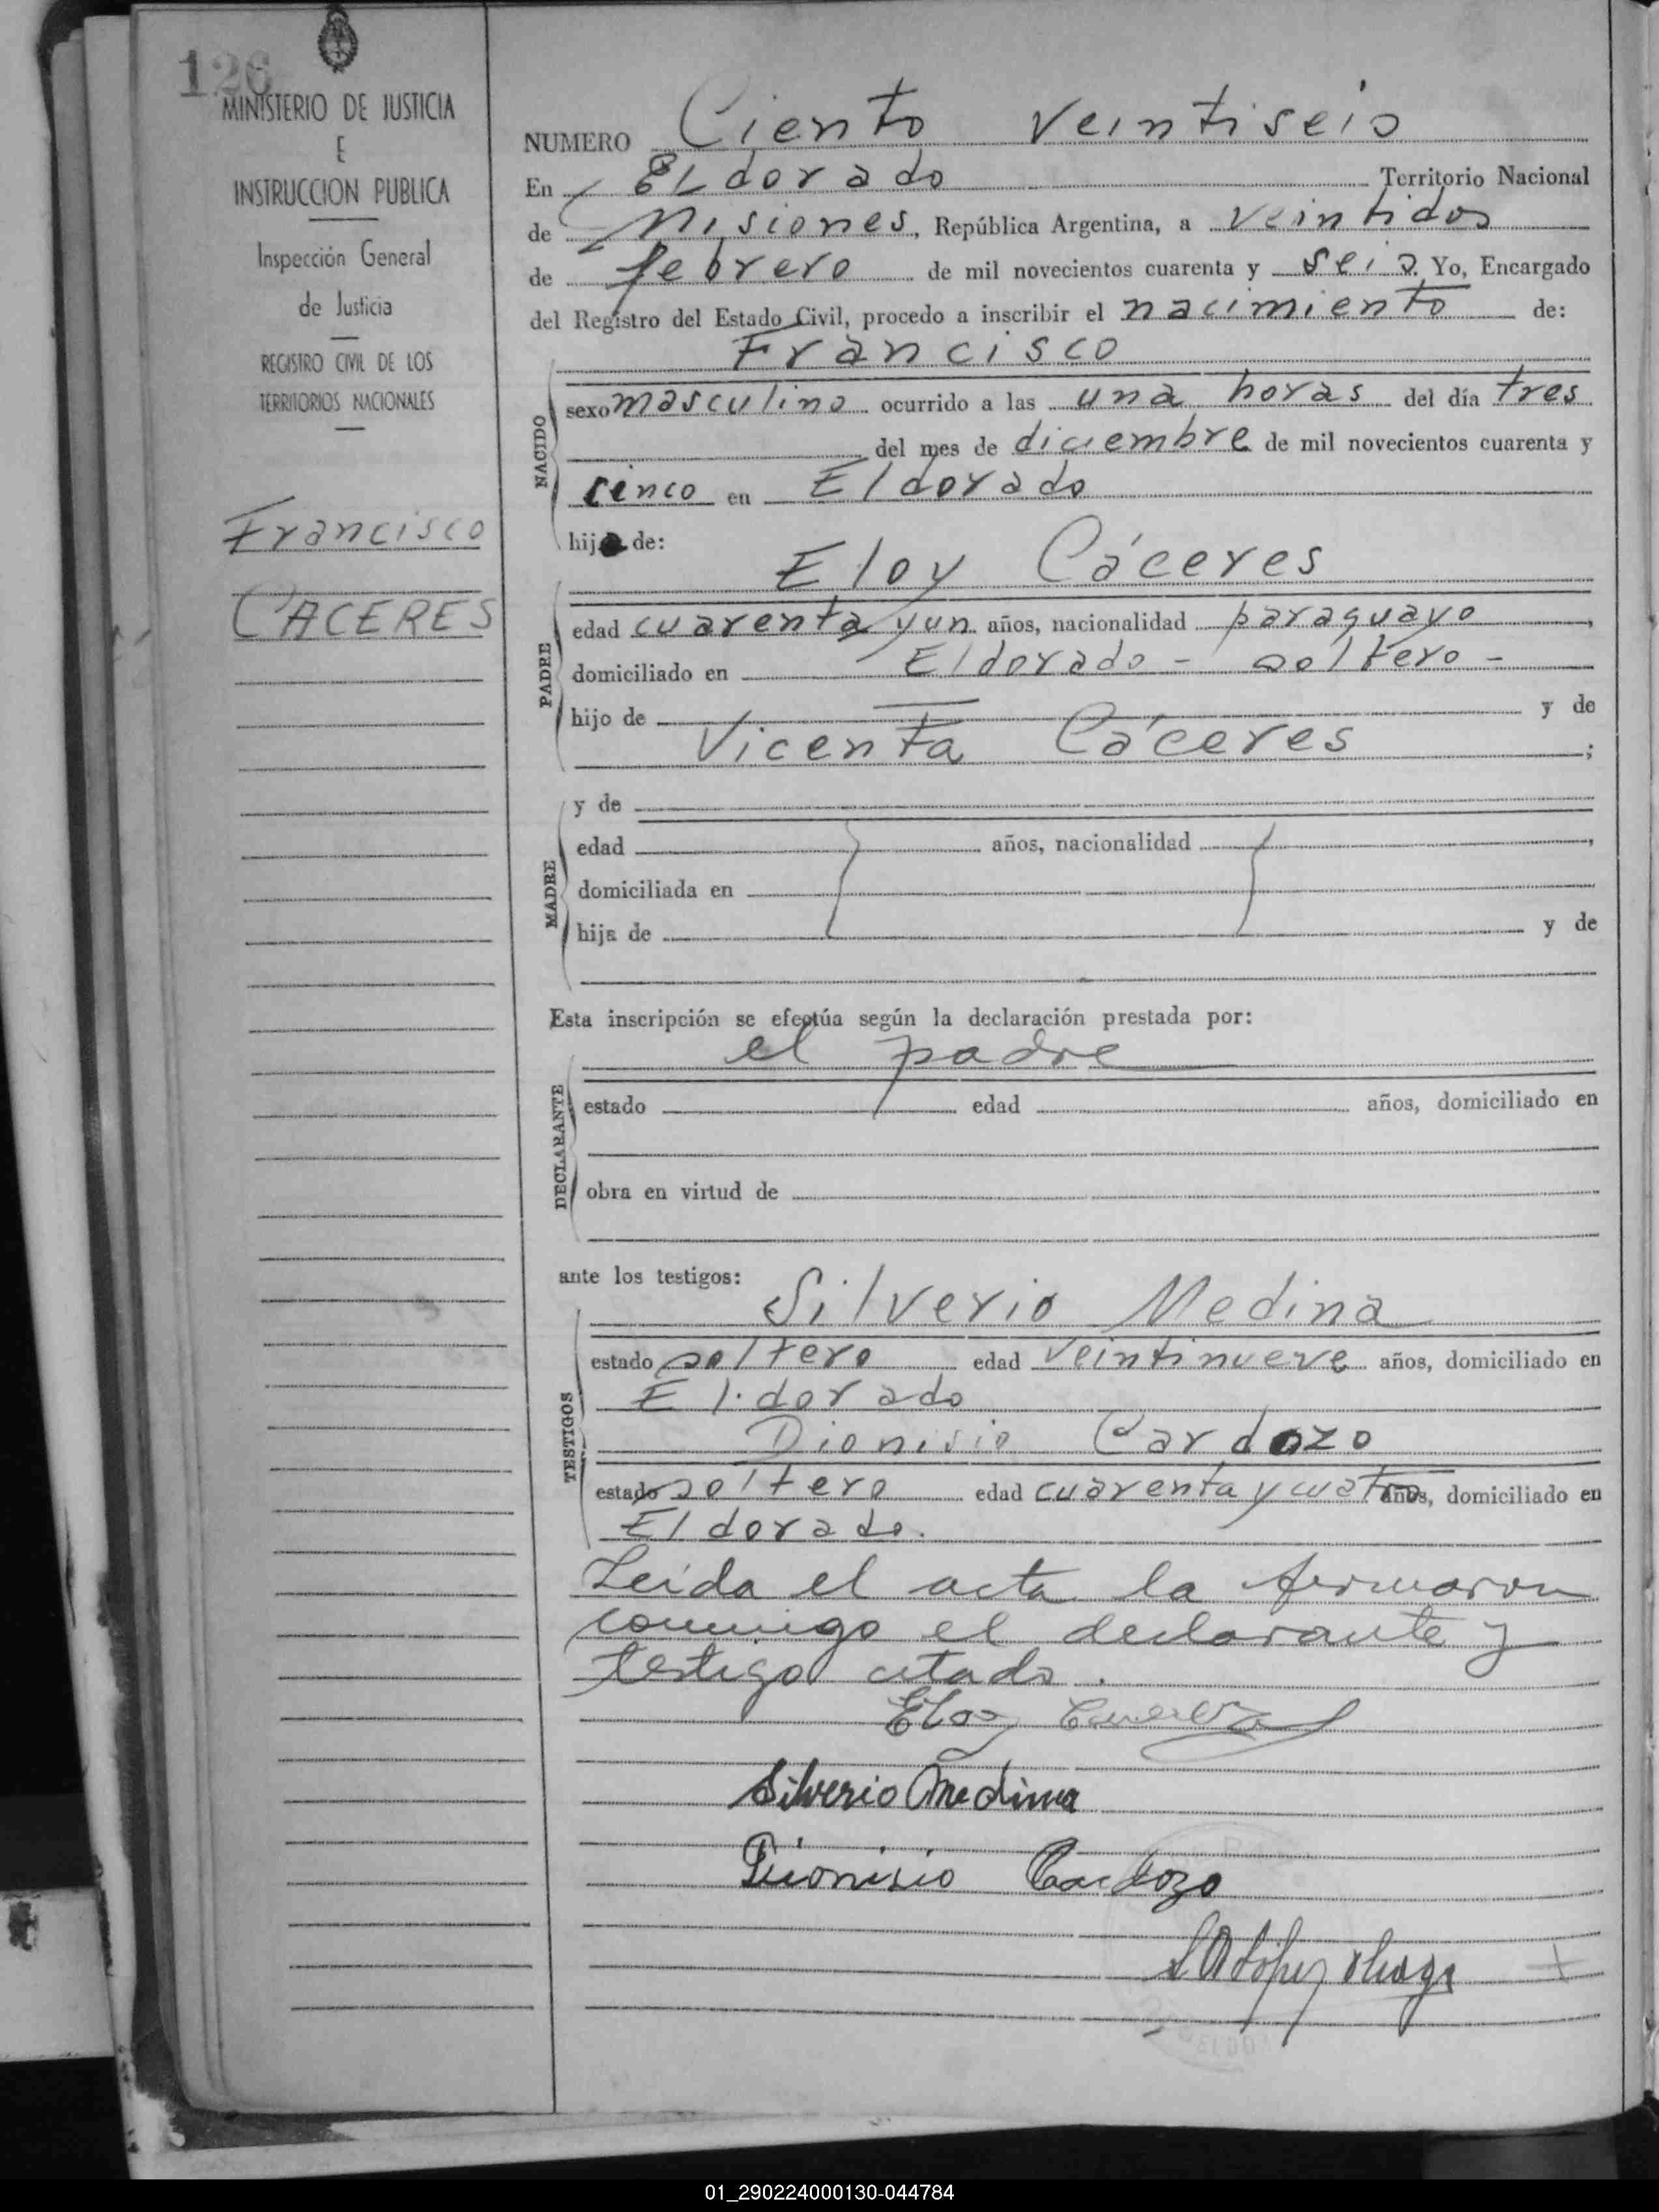 126
MINISTERIO DE JUSTICIA
E
INSTRUCCION PUBLICA
Inspección General
de Justicia
REGISTRO CIVIL DE LOS
TERRITORIOS NACIONALES
Francisco
CACERES
NUMERO Ciento veintiseis
En Eldorado Territorio Nacional
de Misiones, República Argentina, a veintidos
de febrero de mil novecientos cuarenta y seis. Yo, Encargado
del Registro del Estado Civil, procedo a inscribir el nacimiento de:
Francisco
NACIDO
sexo masculino ocurrido a las una horas del día tres
del mes de diciembre de mil novecientos cuarenta y
cinco en Eldorado
hijo de:
Eloy Cáceres
PADRE
edad cuarenta y un años, nacionalidad paraguayo,
domiciliado en Eldorado - soltero -
hijo de y de
Vicenta Cáceres ;
MADRE
y de
edad años, nacionalidad ,
domiciliada en
hija de y de
Esta inscripción se efectúa según la declaración prestada por:
el padre
DECLARANTE
estado edad años, domiciliado en
obra en virtud de
ante los testigos:
Silverio Medina
TESTIGOS
estado soltero edad veintinueve años, domiciliado en
El.dorado
Dionisio Cardozo
estado soltero edad cuarenta y cuatro años, domiciliado en
Eldorado.
Leída el acta la firmaron
conmigo el declarante y
testigo citado.
Eloy Caceres
Silverio Medina
Dionisio Cardozo
01_290224000130-044784